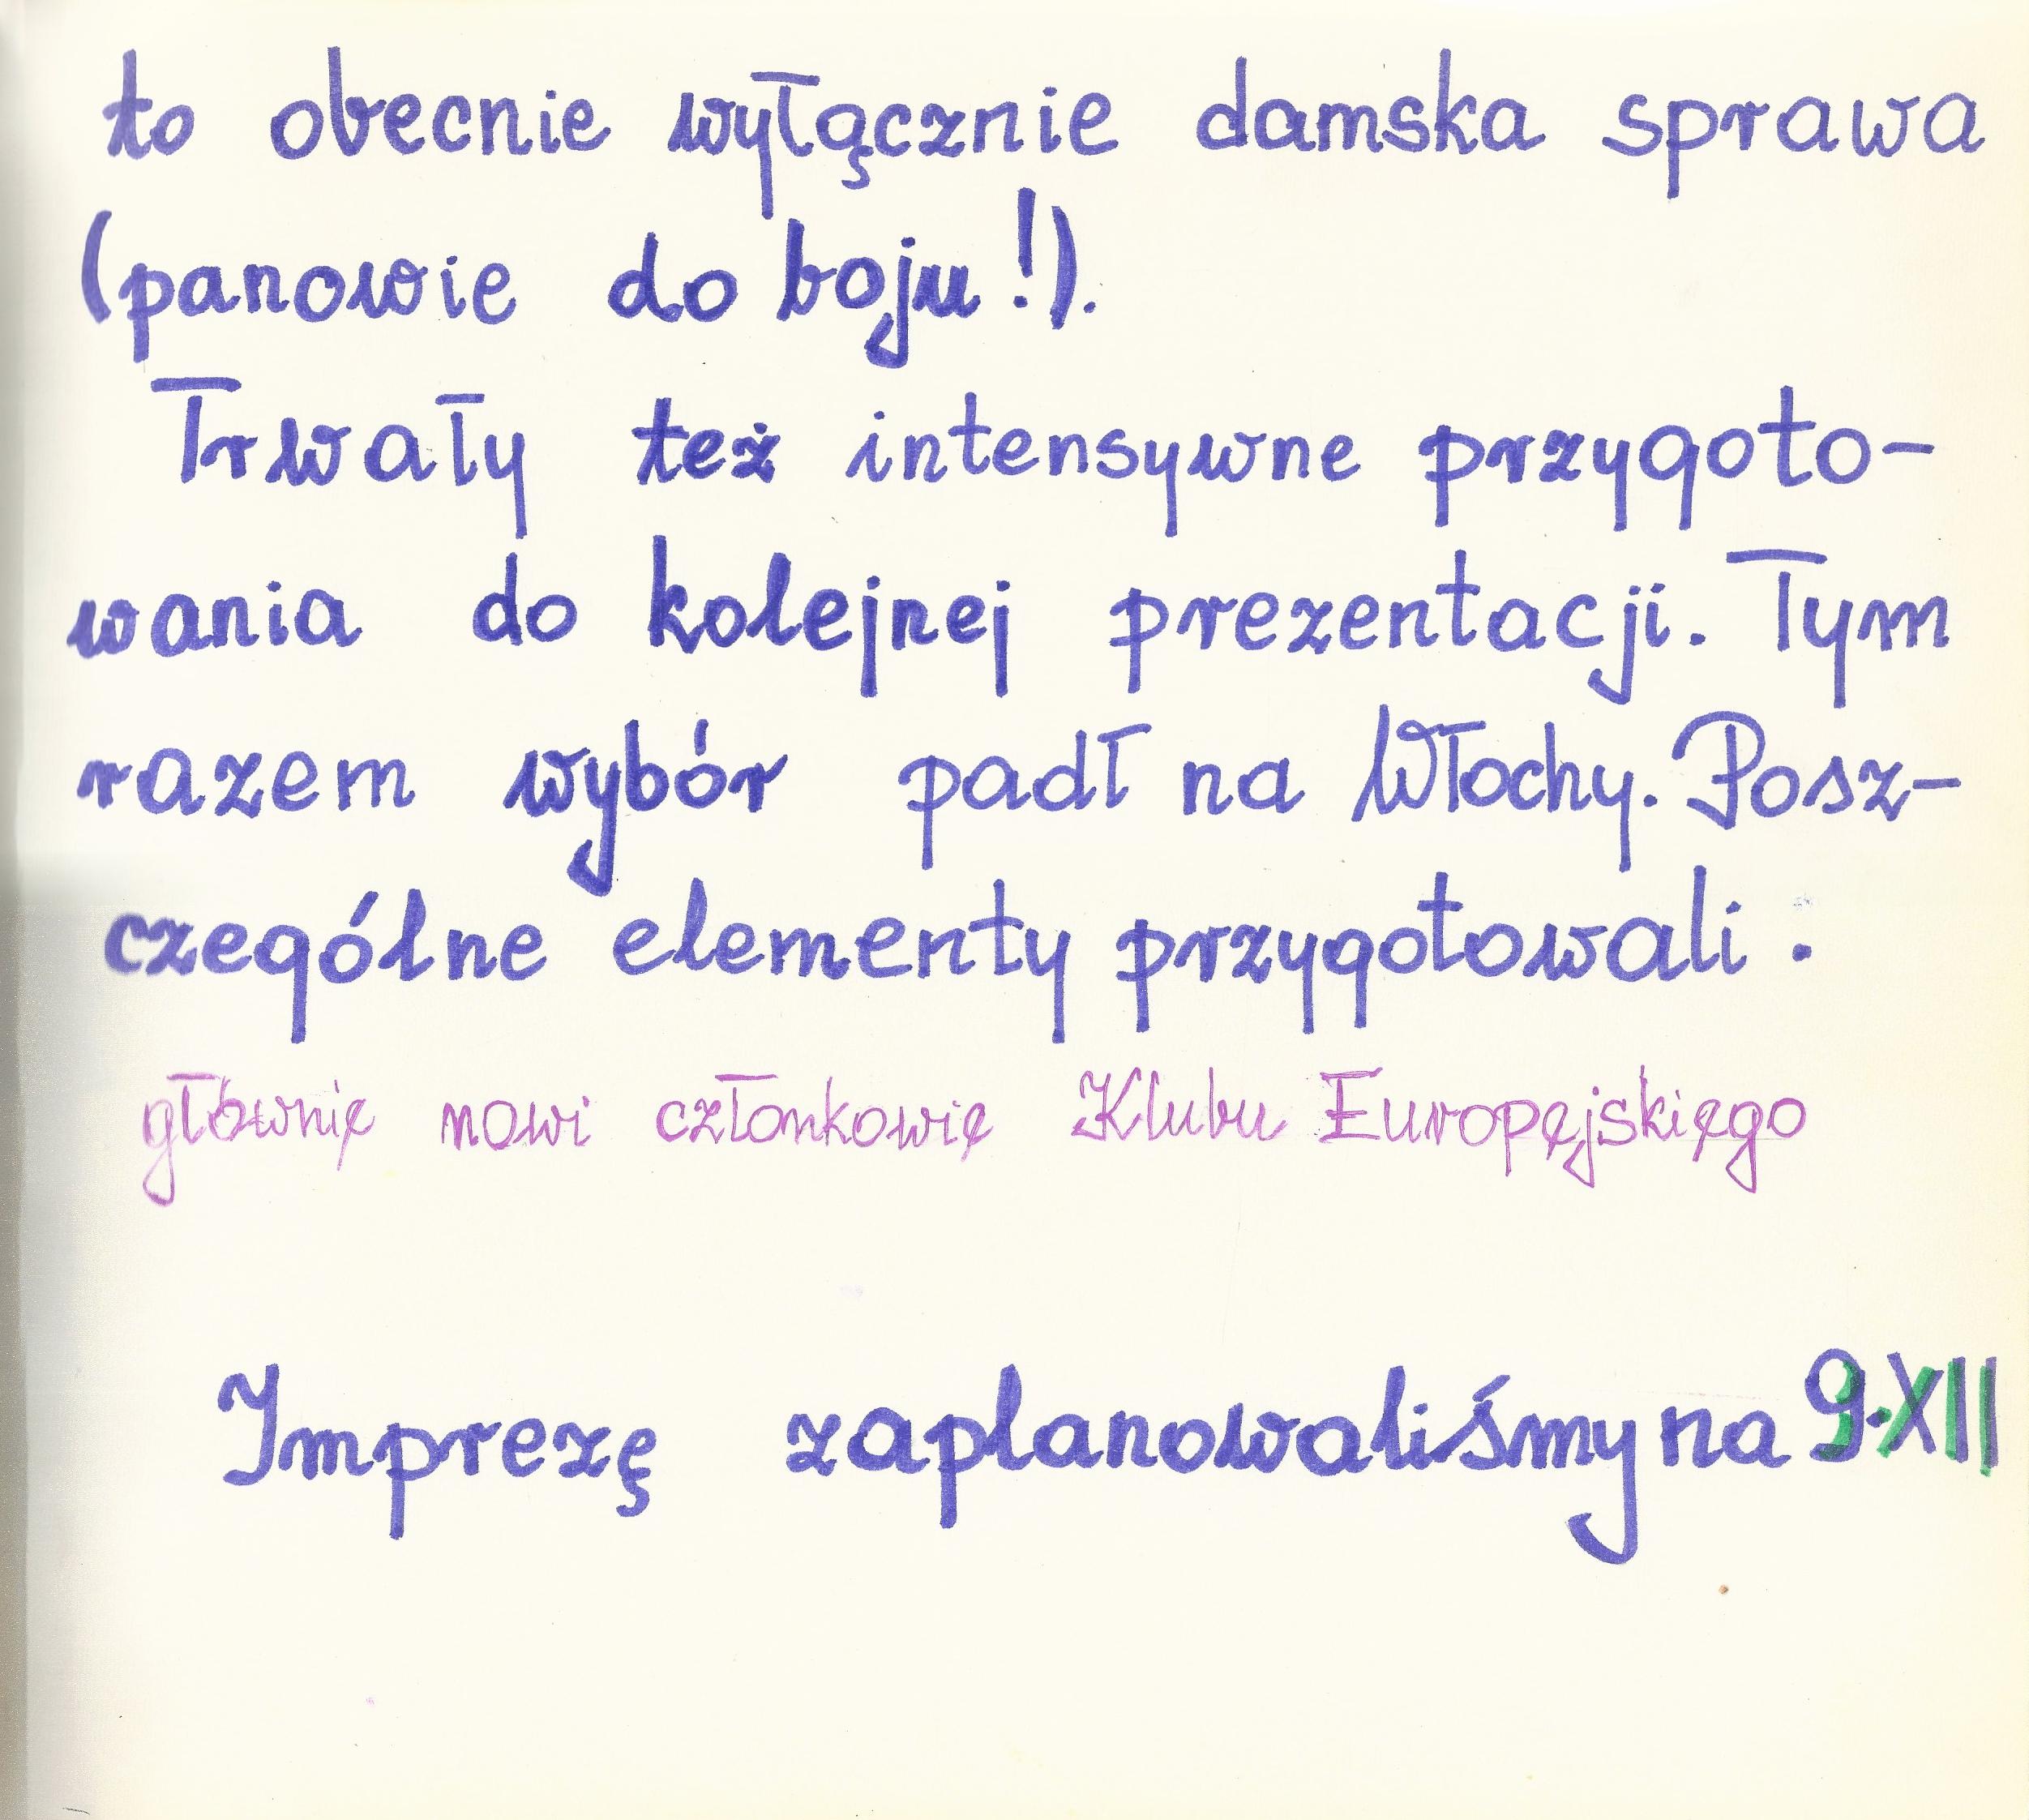 to obecnie wyłącznie damska sprawa
(panowie do boju!).
Trwały też intensywne przygoto-
wania do kolejnej prezentacji. Tym
razem wybór padł na Włochy. Posz-
czególne elementy przygotowali :
głównie nowi członkowie Klubu Europejskiego
Imprezę zaplanowaliśmy na 9.XII